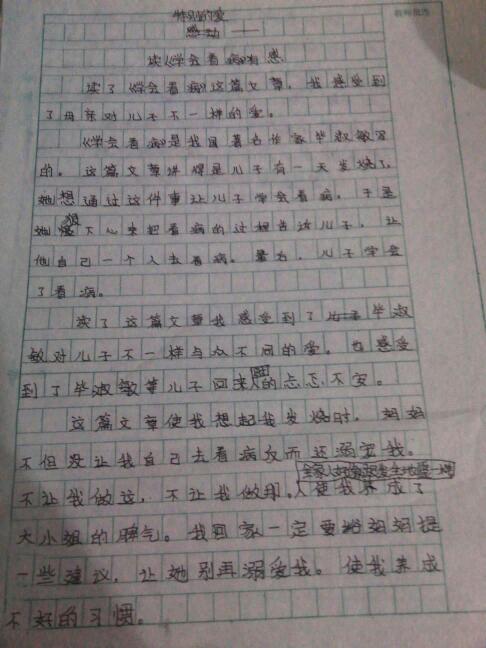 特别的爱
感动——
读《学会看病》有感
读了《学会看病》这篇文章，我感受到
了母亲对儿子不一样的爱。
《学会看病》是我国著名作家毕淑敏写
的。这篇文章讲得是儿子有一天发烧了，
她想通过这件事让儿子学会看病。于是
她狠下心来把看病的过程告诉儿子，让
他自己一个人去看病。最后，儿子学会
了看病。
读了这篇文章我感受到了毕淑
敏对儿子不一样与众不同的爱。也感受
到了毕淑敏等儿子回来的忐忑不安。
这篇文章使我想起我发烧时，妈妈
不但没让我自己去看病反而还溺宠我。
不让我做这，不让我做那。使我养成了
大小姐的脾气。我回家一定要给妈妈提
一些建议，让她别再溺爱我。使我养成
不好的习惯。